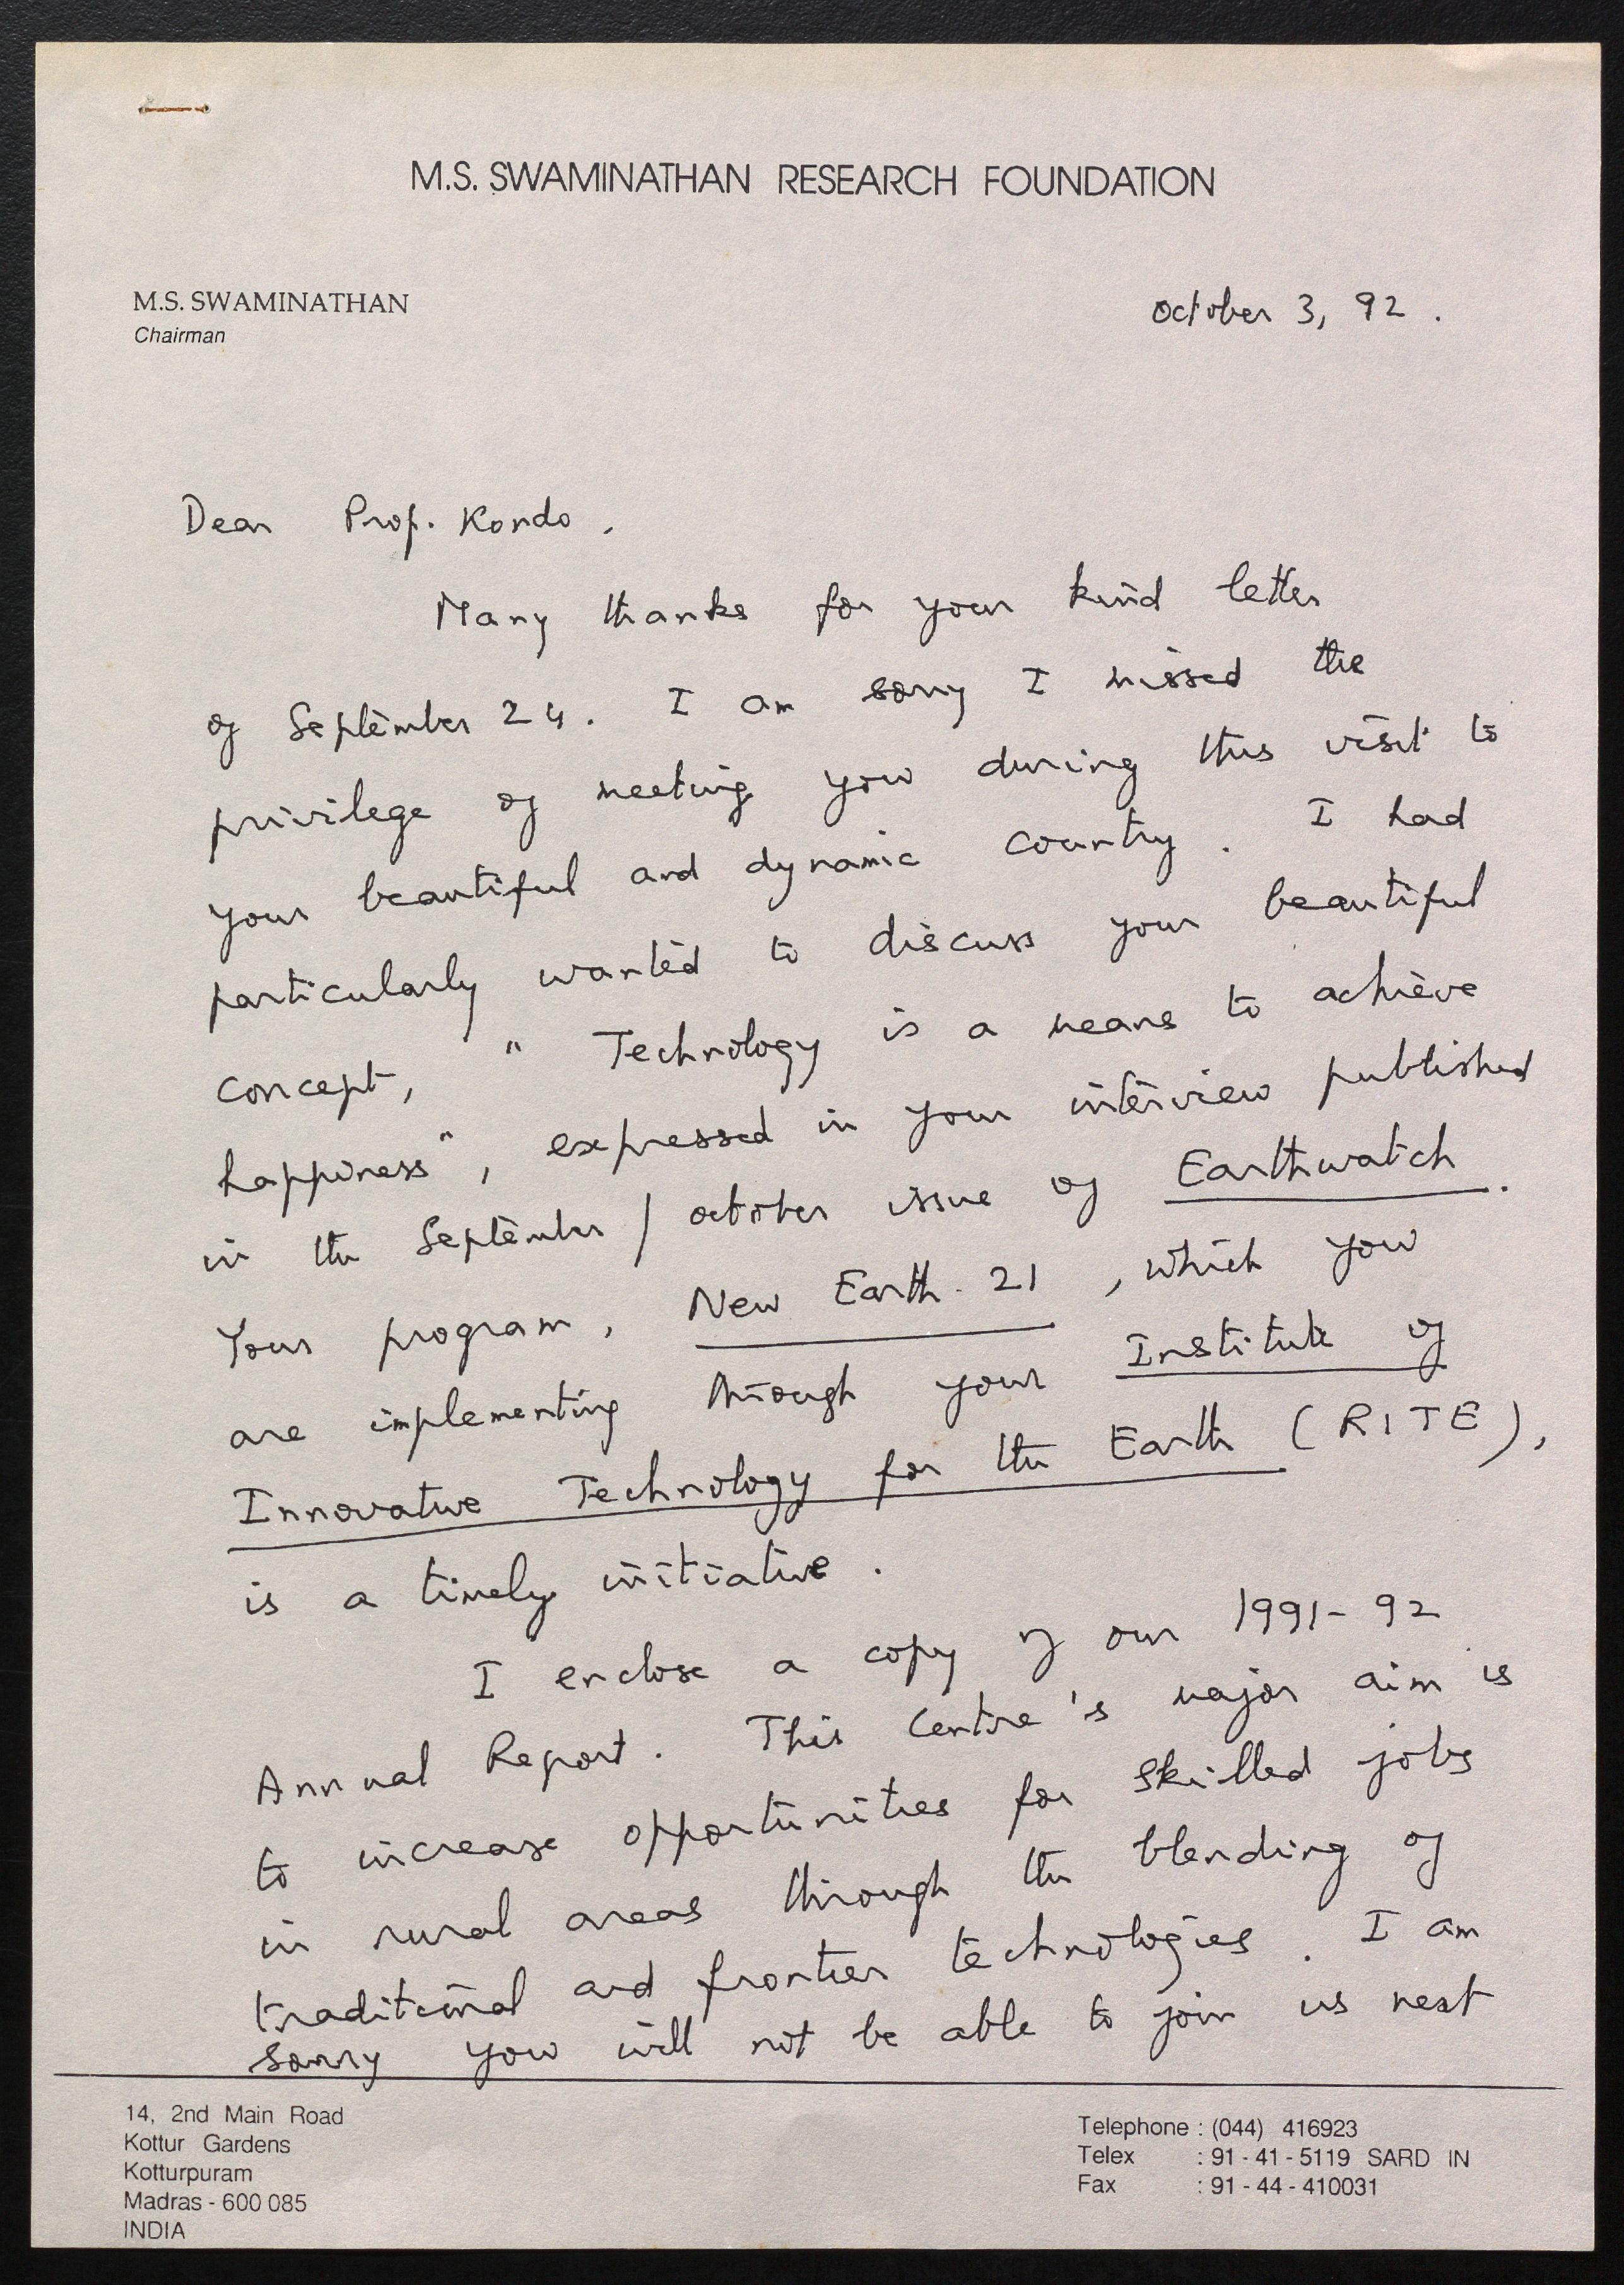 M.S. SWAMINATHAN RESEARCH FOUNDATION
M.S. SWAMINATHAN
Chairman
October 3, 92.
Dear Prof. Kondo,
Many thanks for your kind letter
of September 24. I am sorry I missed the
privilege of meeting you during this visit to
your beautiful and dynamic country. I had
particularly wanted to discuss your beautiful
concept, "Technology is a means to achieve
happiness", expressed in your interview published
in the September / October issue of Earthwatch.
Your program, New Earth 21, which you
are implementing through your Institute of
Innovative Technology for the Earth (RITE),
is a timely initiative.
I enclose a copy of our 1991-92
Annual Report. This Centre's major aim is
to increase opportunities for skilled jobs
in rural areas through the blending of
traditional and frontier technologies. I am
sorry you will not be able to join us next
14, 2nd Main Road
Kottur Gardens
Kotturpuram
Madras - 600 085
INDIA
Telephone : (044) 416923
Telex : 91 - 41 - 5119 SARD IN
Fax : 91 - 44 - 410031